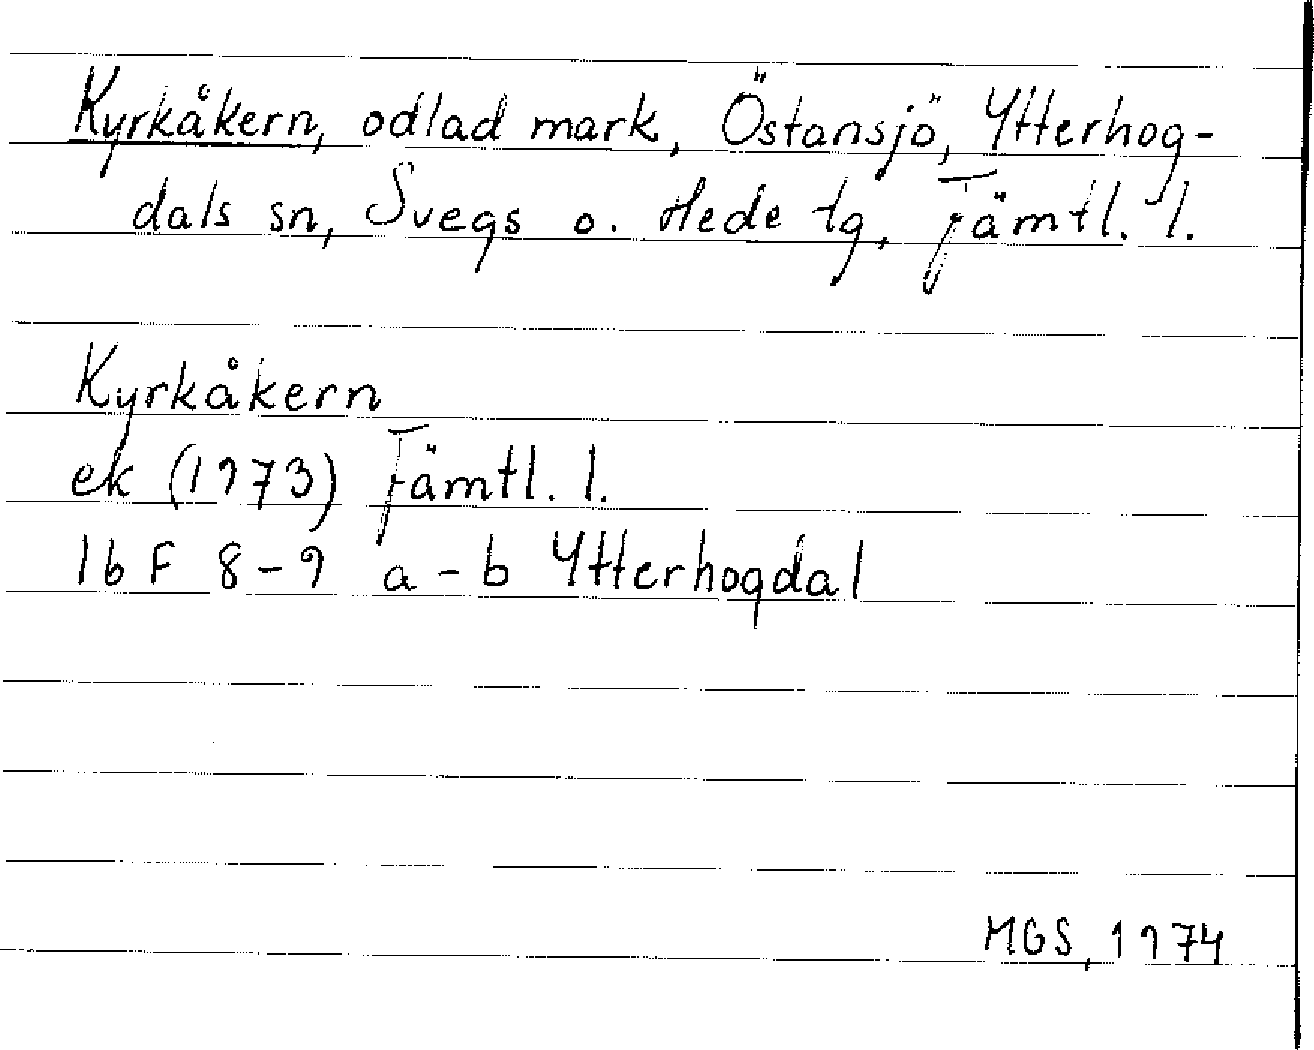 Kyrkåkern, odlad mark, Östansjö, Ytterhog-
dals sn, Svegs o. Hede tg, Jämtl. l.
Kyrkåkern
ek (1973) Jämtl. l.
16 F 8-9 a-b Ytterhogdal
MGS, 1974